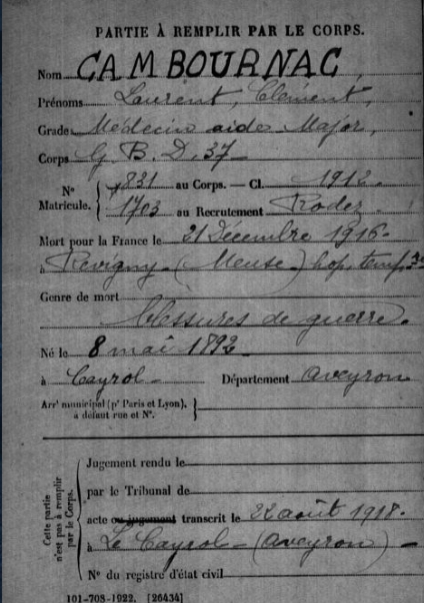 PARTIE À REMPLIR PAR LE CORPS.
Nom CAMBOURNAC,
Prénoms Laurent, Clément,
Grade Médecin aide Major,
Corps G. B. D, 37
N° Matricule. { 831 au Corps. — Cl. 1912.
1703 au Recrutement Rodez
Mort pour la France le 21 Décembre 1916.
à Revigny (Meuse) hop. temp.
Genre de mort
blessures de guerre.
Né le 8 mai 1892
à Cayrol Département Aveyron
Arrt municipal (pr Paris et Lyon),
à défaut rue et N°.
Cette partie n'est pas à remplir par le Corps.
Jugement rendu le
par le Tribunal de
acte ou jugement transcrit le 22 août 1918.
à Le Cayrol (Aveyron)
N° du registre d'état civil
101-708-1922. [26434]